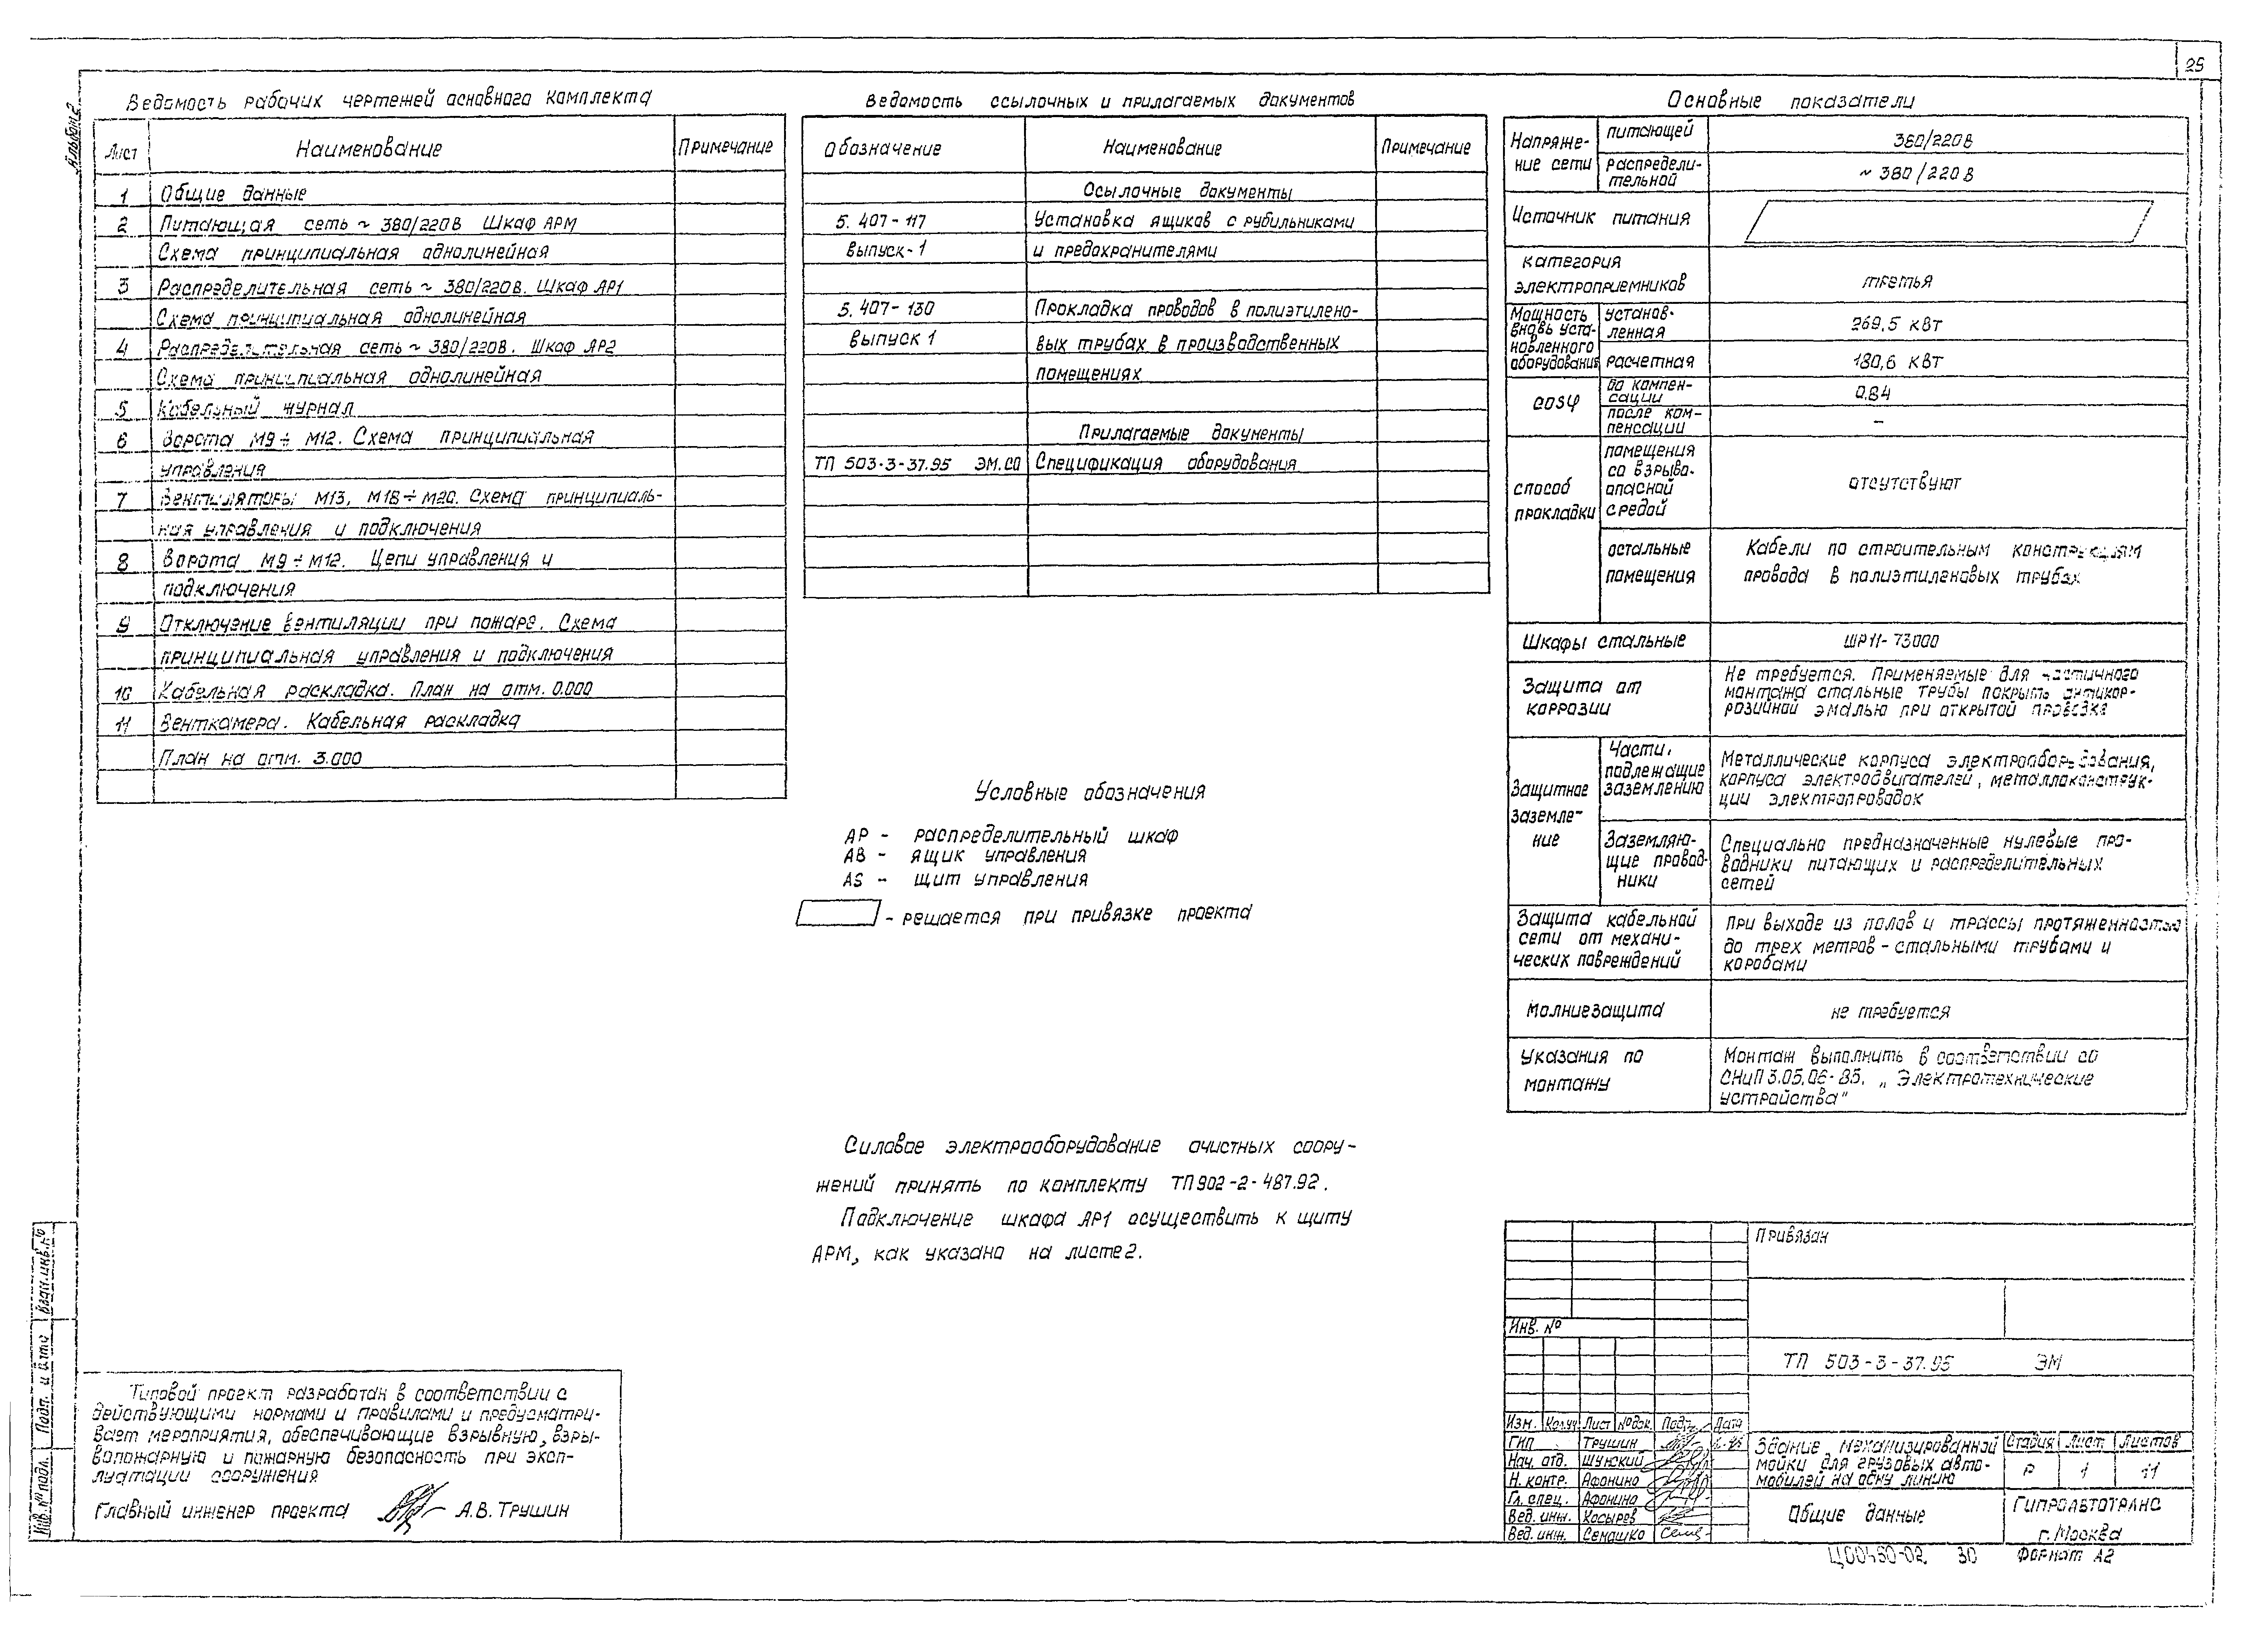 25
Альбом 2
Ведомость рабочих чертежей основного комплекта
Лист Наименование Примечание
1 Общие данные
2 Питающая сеть ~ 380/220В Шкаф АРМ
Схема принципиальная однолинейная
3 Распределительная сеть ~ 380/220В. Шкаф АР1
Схема принципиальная однолинейная
4 Распределительная сеть ~ 380/220В. Шкаф АР2
Схема принципиальная однолинейная
5 Кабельный журнал
6 Ворота М9÷М12. Схема принципиальная
управления
7 Вентиляторы М13, М18÷М20. Схема принципиаль-
ная управления и подключения
8 Ворота М9÷М12. Цепи управления и
подключения
9 Отключение вентиляции при пожаре. Схема
принципиальная управления и подключения
10 Кабельная раскладка. План на отм. 0.000
11 Венткамера. Кабельная раскладка
План на отм. 3.000
Ведомость ссылочных и прилагаемых документов
Обозначение Наименование Примечание
Ссылочные документы
5.407-117 Установка ящиков с рубильниками
выпуск-1 и предохранителями
5.407-130 Прокладка проводов в полиэтилено-
выпуск 1 вых трубах в производственных
помещениях
Прилагаемые документы
ТП 503-3-37.95 ЭМ.СО Спецификация оборудования
Условные обозначения
АР - распределительный шкаф
АВ - ящик управления
AS - щит управления
- решается при привязке проекта
Силовое электрооборудование очистных соору-
жений принять по комплекту ТП 902-2-487.92.
Подключение шкафа АР1 осуществить к щиту
АРМ, как указано на листе 2.
Основные показатели
Напряже-
ние сети
питающей 380/220В
распредели-
тельной ~ 380/220В
Источник питания
Категория
электроприемников третья
Мощность
вновь уста-
новленного
оборудования
установ-
ленная 269,5 кВт
расчетная 180,6 кВт
cosφ
до компен-
сации 0.84
после ком-
пенсации -
способ
прокладки
помещения
со взрыво-
опасной
средой
отсутствуют
остальные
помещения
Кабели по строительным конструкциям
провода в полиэтиленовых трубах
Шкафы стальные ШР11-73000
Защита от
коррозии
Не требуется. Применяемые для частичного
монтажа стальные трубы покрыть антикор-
розийной эмалью при открытой проводке
Защитное
заземле-
ние
Части,
подлежащие
заземлению
Металлические корпуса электрооборудования,
корпуса электродвигателей, металлоконструк-
ции электропроводок
Заземляю-
щие провод-
ники
Специально предназначенные нулевые про-
водники питающих и распределительных
сетей
Защита кабельной
сети от механи-
ческих повреждений
при выходе из полов и трассы протяженностью
до трех метров - стальными трубами и
коробами
Молниезащита не требуется
Указания по
монтажу
Монтаж выполнить в соответствии со
СНиП 3.05.06-85. „Электротехнические
устройства"
Типовой проект разработан в соответствии с
действующими нормами и правилами и предусматри-
вает мероприятия, обеспечивающие взрывную, взры-
вопожарную и пожарную безопасность при эксп-
луатации сооружения
Главный инженер проекта А.В. Трушин
Инв. № подл. Подп. и дата Взам. инв. №
Привязан
Инв. №
ТП 503-3-37.95 ЭМ
Изм. Кол.уч Лист № док. Подп. Дата
ГИП Трушин
Нач. отд. Шунский
Н. контр. Афонина
Гл. спец. Афонина
Вед. инж. Косырев
Вед. инж. Семашко
Здание механизированной
мойки для грузовых авто-
мобилей на одну линию
Стадия Лист Листов
Р 1 11
Общие данные
ГИПРОАВТОТРАНС
г. Москва
Ц00450-02 30 Формат А2